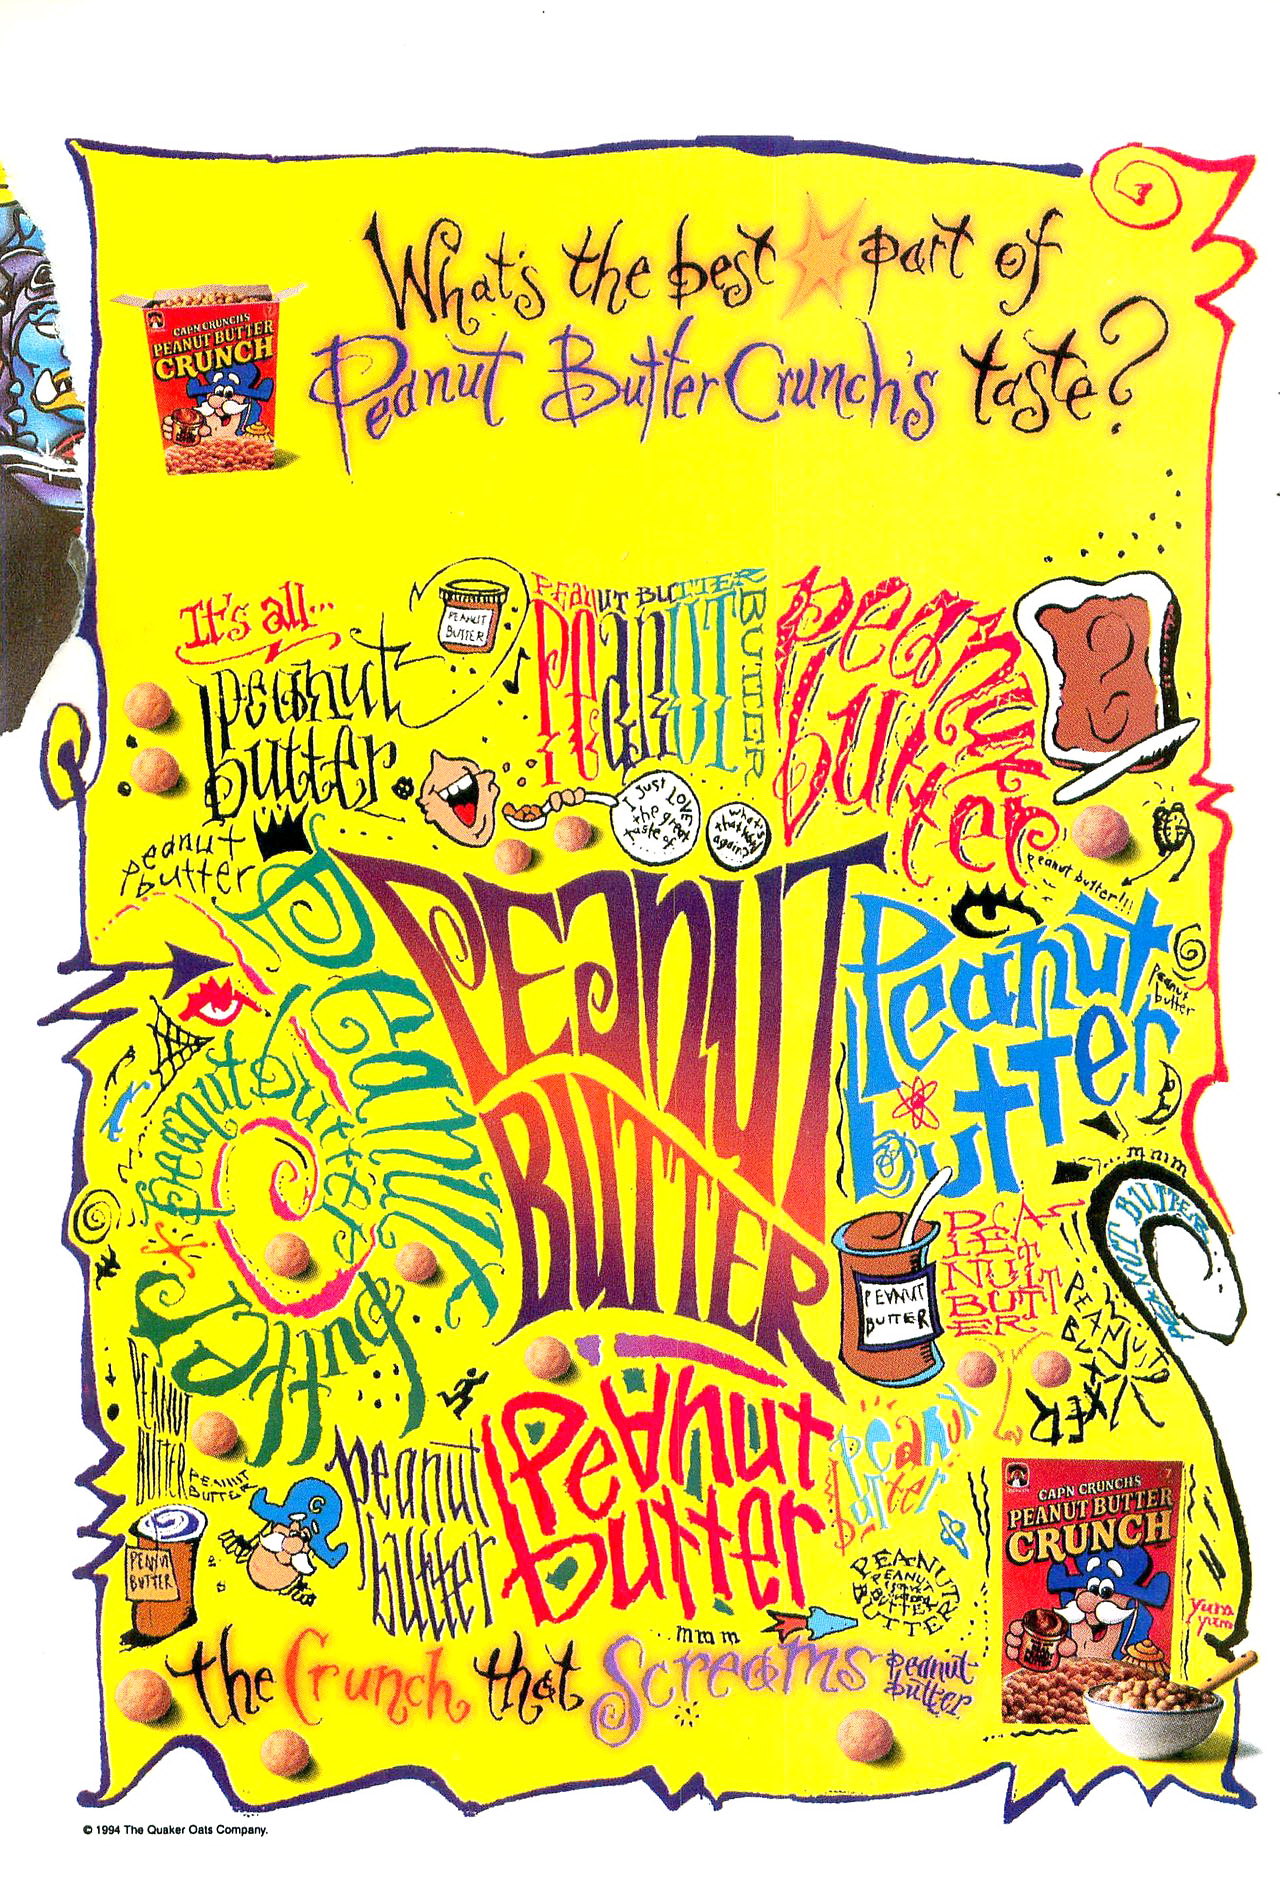 What's the best part of
Peanut Butter Crunch's taste?
CAP'N CRUNCH'S
PEANUT BUTTER
CRUNCH
It's all...
peanut
butter
PEANUT
BUTTER
PEANUT BUTTER
PEANUT
BUTTER
peanut
butter
I just love
the great
taste of
what's
that word
again?
peanut
butter
peanut butter!!!
Peanut
Butter
PEANUT
BUTTER
Peanut
butter
peanut
butter
Peanut butter
mmm
PEANUT BUTTER
PEANUT
BUTTER
PEA-
PEA
NUT
BUTT
ER
PEANUT
BUTTER
PEANUT
BUTTER
PEANUT
BUTTER
PEANUT
BUTTER
peanut
butter
Peanut
butter
peanut
butter
PEANUT
PEANUT
BUTTER
BUTTER
C
CAP'N CRUNCH'S
PEANUT BUTTER
CRUNCH
yum
yum
mmm
the Crunch that Screams peanut
butter
© 1994 The Quaker Oats Company.